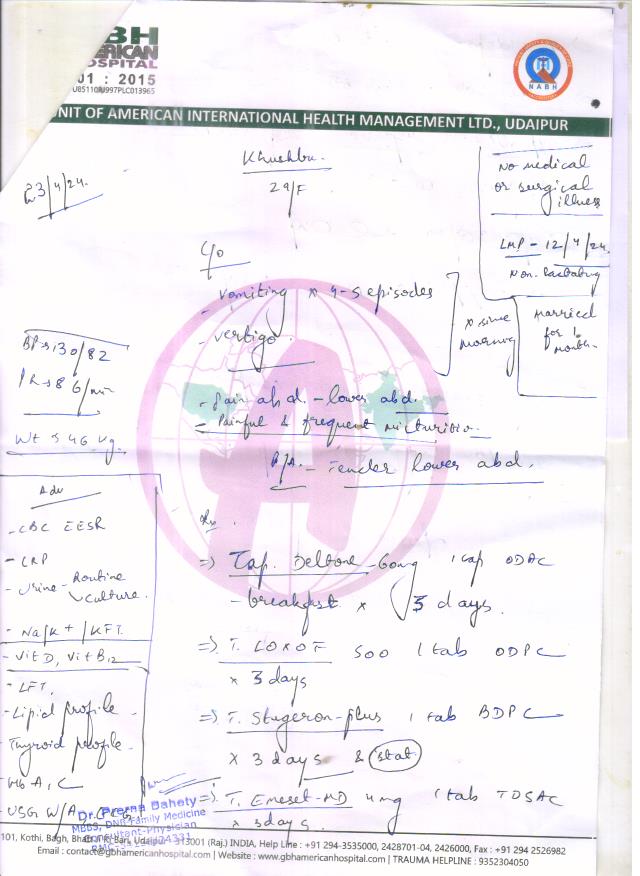 BH
ERICAN
HOSPITAL
01 : 2015
U85110RJ1997PLC013965
NABH
UNIT OF AMERICAN INTERNATIONAL HEALTH MANAGEMENT LTD., UDAIPUR
23/4/24.
Khushbu.
29/F
No medical
or surgical
illness
LMP - 12/4/24.
Non. lactating
married
for 1
month.
C/o
- vomiting x 4-5 episodes
- vertigo.
x since
morning
BP → 130/82
PR → 86/min
Wt → 46 kg.
- Pain abd. - lower abd.
- Painful & frequent micturition.
P/A. - Tender lower abd.
Adv
- CBC ESR
- CRP
- Urine - Routine
culture.
- Na/K+/KFT.
- Vit D, Vit B12
- LFT.
- Lipid profile -
- Thyroid profile -
- Hb A1C
- USG W/A
Rx.
=> Cap. 60mg 1 cap ODAC
- breakfast x 5 days.
=> T. LOXOF 500 1 tab ODPC
x 3 days
=> T. Stugeron-plus 1 tab BDPC
x 3 days & stat
=> T. Emeset-MD 4mg 1 tab TDSAC
x 3days.
Dr. Prerna Bahety
MBBS, DNB Family Medicine
Consultant-Physician
101, Kothi, Bagh, Bhatt Ji Ki Bari, Udaipur - 313001 (Raj.) INDIA, Help Line : +91 294-3535000, 2428701-04, 2426000, Fax : +91 294 2526982
Email : contact@gbhamericanhospital.com | Website : www.gbhamericanhospital.com | TRAUMA HELPLINE : 9352304050